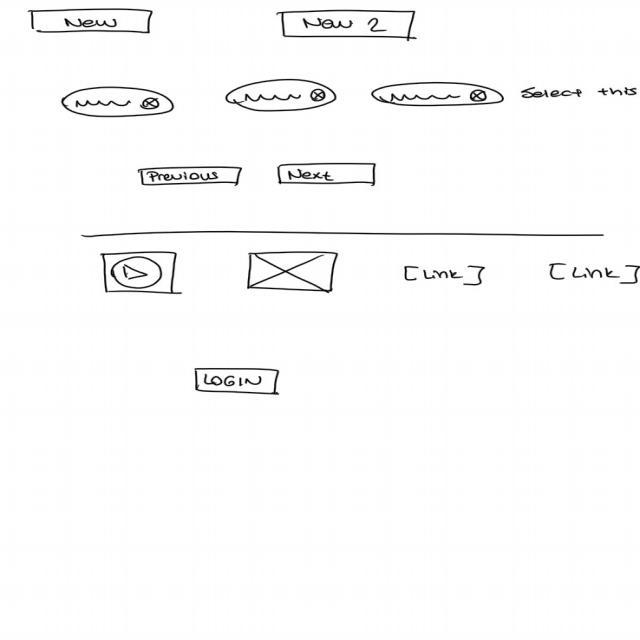 New New 2
Select this
Previous Next
[Link] [Link]
LOGIN